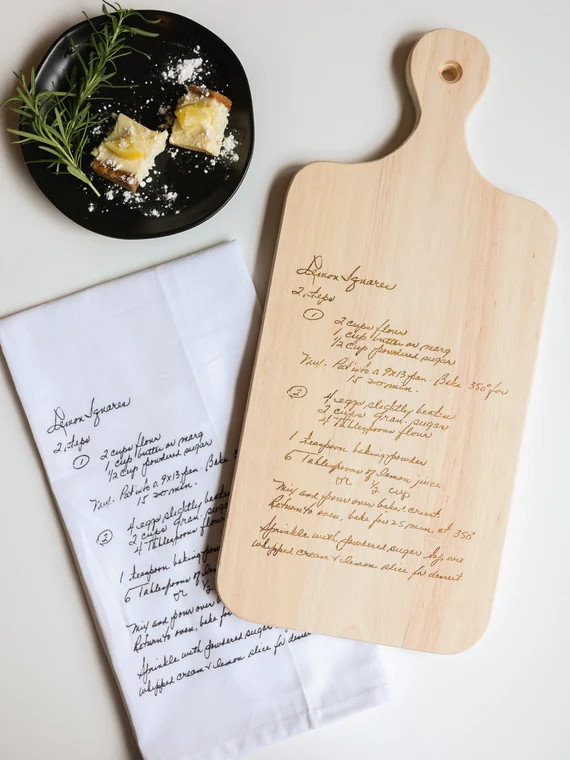 Lemon Squares
2 steps
① 2 cups flour
1 cup butter or marg
1/2 cup powdered sugar
Mix. Pat into a 9x13 pan. Bake 350° for
15 20 min.
② 4 eggs slightly beaten
2 cups gran. sugar
4 Tablespoons flour
1 teaspoon baking powder
6 Tablespoons of lemon juice
or 1/2 cup
Mix and pour over baked crust.
Return to oven, bake for 25 min. at 350°
Sprinkle with powdered sugar use
whipped cream + lemon slice for dessert
Lemon Squares
2 steps
① 2 cups flour
1 cup butter or marg
1/2 cup powdered sugar
Mix. Pat into a 9x13 pan. Bake 3
15 20 min.
② 4 eggs slightly beate
2 cups gran. suga
4 Tablespoons flour
1 teaspoon baking pow
6 Tablespoons of le
or 1/2
Mix and pour over
Return to oven, bake fo
Sprinkle with powdered sugar
whipped cream + lemon slice for desser